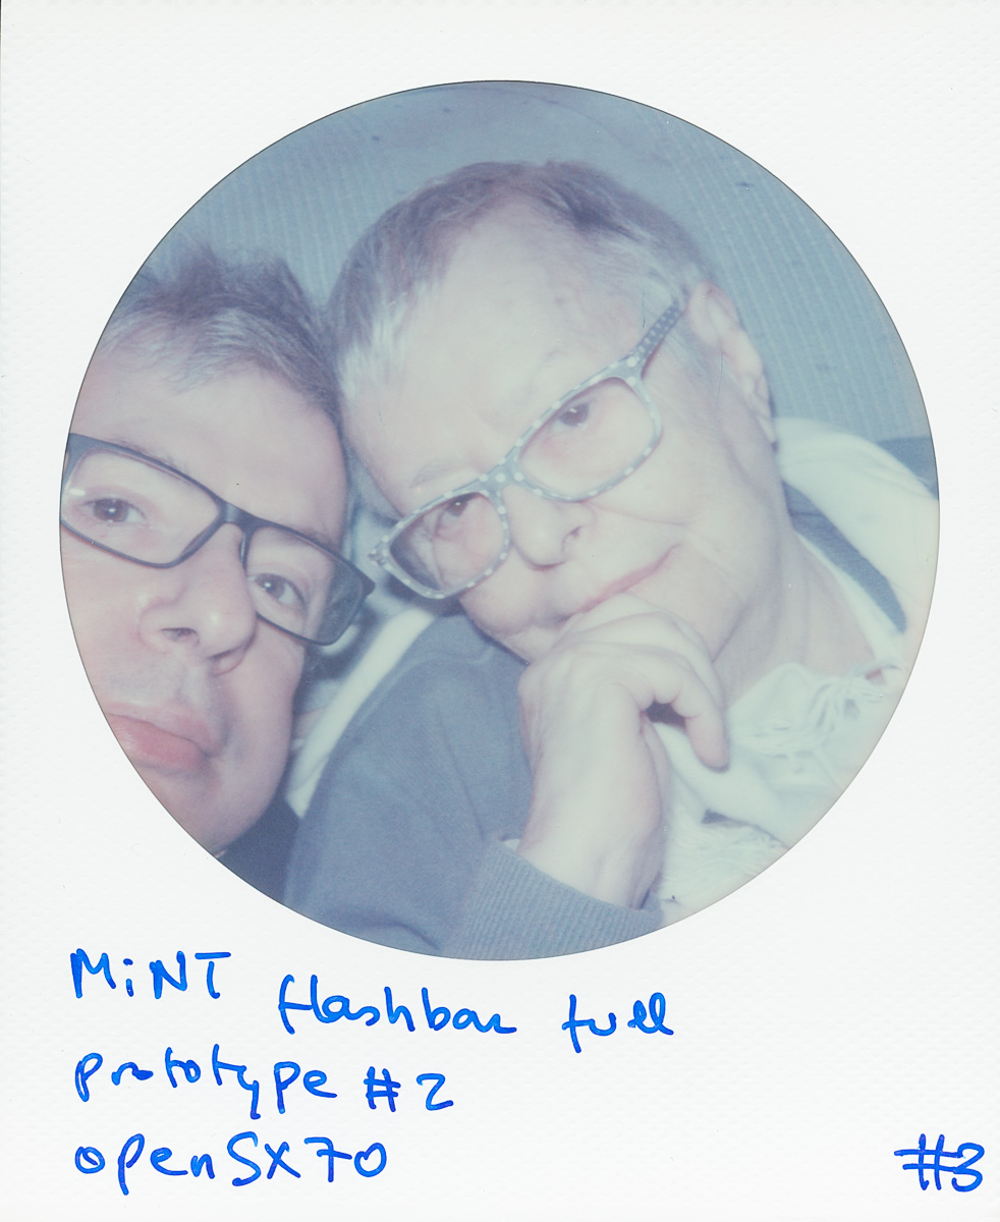 MiNT flashbar full
prototype #2
openSX70
#3